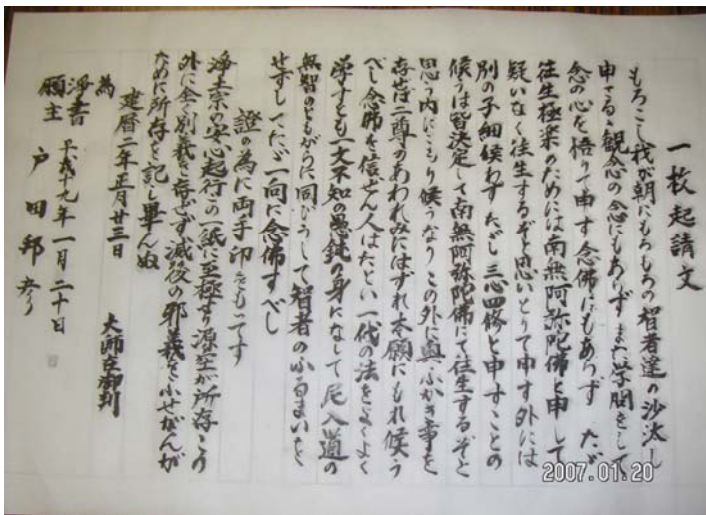 一枚起請文
もろこし我が朝にもろもろの智者達の沙汰し
申さるる観念の念にもあらず また学問をして
念の心を悟りて申す念佛にもあらず ただ
往生極楽のためには南無阿弥陀佛と申して
疑いなく往生するぞと思いとりて申す外には
別の子細候わず ただし三心四修と申すことの
候うは皆決定して南無阿弥陀佛にて往生するぞと
思う内にこもり候うなり この外に奥ふかき事を
存ぜば二尊のあわれみにはずれ本願にもれ候う
べし 念佛を信ぜん人はたとい一代の法をよくよく
学すとも一文不知の愚鈍の身になして尼入道の
無智のともがらに同じうして智者のふるまいを
せずしてただ一向に念佛すべし
證の為に両手印をもってす
浄土宗の安心起行この一紙に至極す 源空が所存この
外に全く別義を存ぜず 滅後の邪義をふせがんが
ために所存を記し畢んぬ
建暦二年正月廿三日
大師在御判
為
浄書 平成十九年一月二十日
願主 戸田邦
2007.01.20